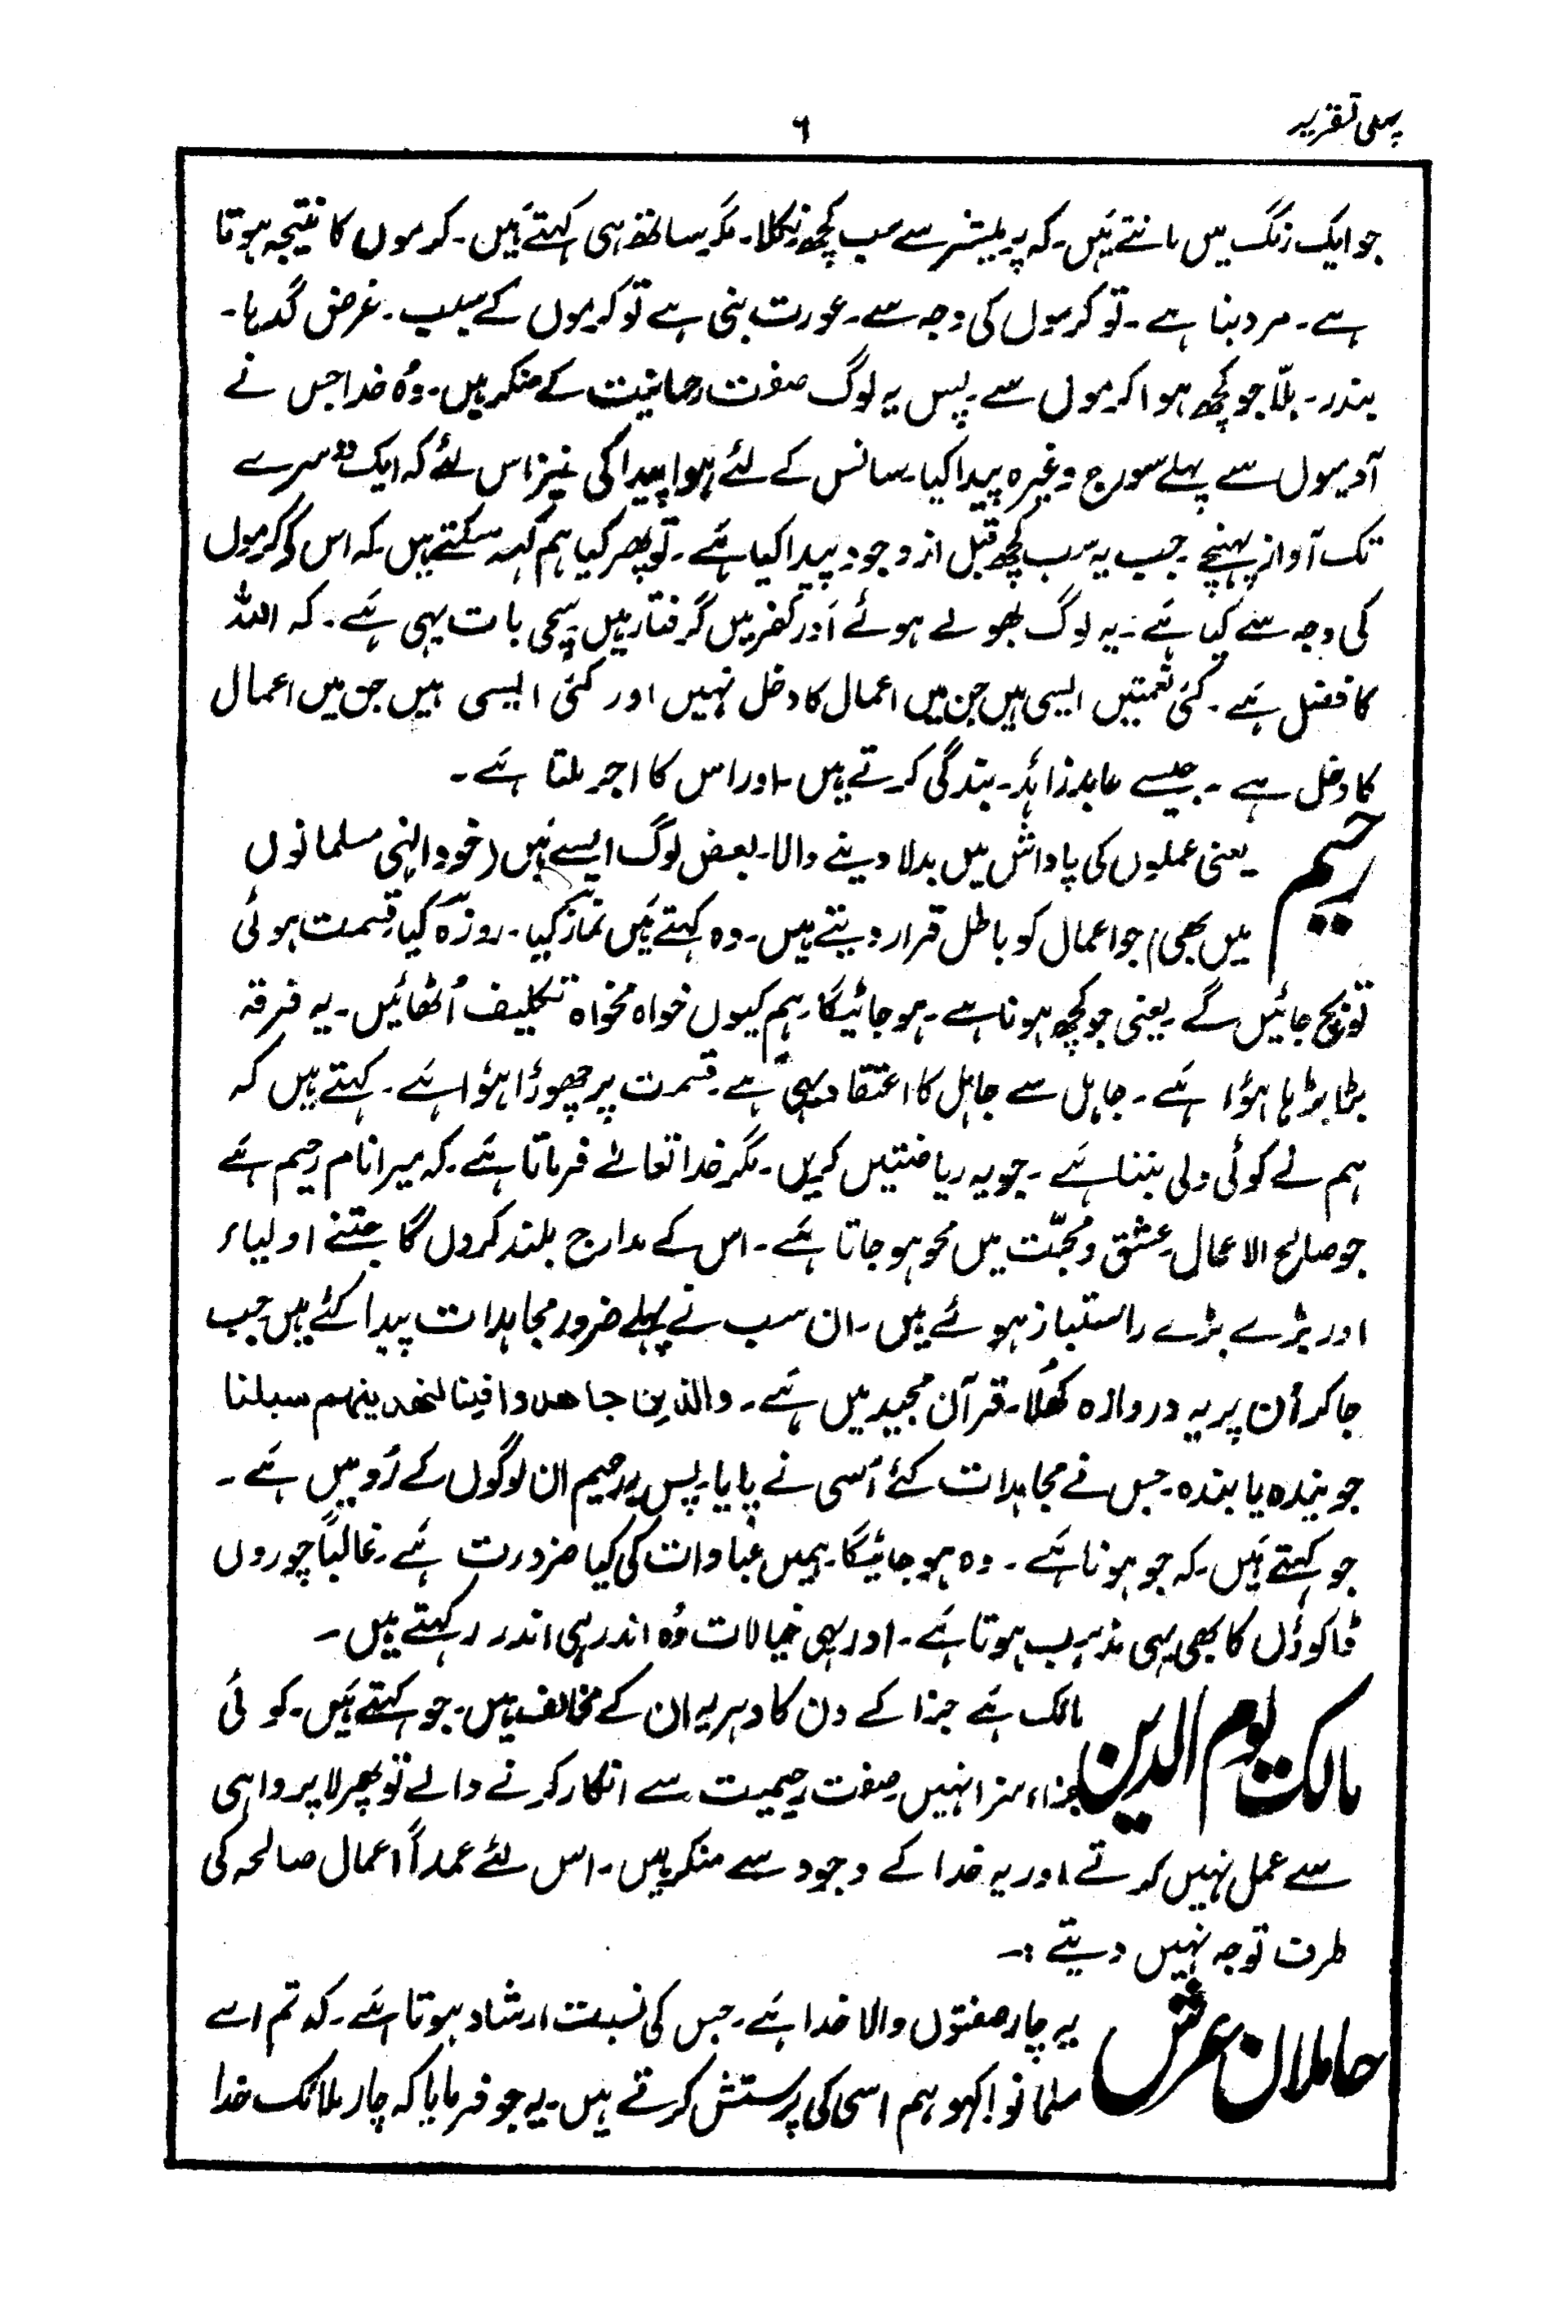 پہلی تقریر
۶
جو ایک رنگ میں مانتے ہیں۔ کہ پرمیشر سے سب کچھ نکلا۔ مگر ساتھ ہی کہتے ہیں۔ کرموں کا نتیجہ ہوتا
ہے۔ مرد بنا ہے۔ تو کرموں کی وجہ سے۔ عورت بنی ہے تو کرموں کے سبب۔ غرض گدہا۔
بندر۔ بلّا جو کچھ ہوا کرموں سے۔ پس یہ لوگ صفت رحمانیت کے منکر ہیں۔ وُہ خدا جس نے
آدمیوں سے پہلے سورج وغیرہ پیدا کیا۔ سانس کے لئے ہوا پیدا کی نیز اس لئے کہ ایک دوسرے
تک آواز پہنچے۔ جب یہ سب کچھ قبل از وجود پیدا کیا ہے۔ تو پھر کیا ہم کہہ سکتے ہیں کہ اس کو کرموں
کی وجہ سے کیا ہے۔ یہ لوگ بھولے ہوئے اَور کفر میں گرفتار ہیں۔ سچی بات یہی ہے۔ کہ اللہ
کا فضل ہے۔ کئی نعمتیں ایسی ہیں جن میں اعمال کا دخل نہیں اور کئی ایسی ہیں جن میں اعمال
کا دخل ہے۔ جیسے عابد زاہد۔ بندگی کرتے ہیں۔ اور اس کا اجر ملتا ہے۔
رحیم یعنی عملوں کی پاداش میں بدلا دینے والا۔ بعض لوگ ایسے ہیں (خود اپنی مسلمانوں
میں بھی) جو اعمال کو باطل قرار دیتے ہیں۔ وہ کہتے ہیں نماز کیا۔ روزہ کیا قسمت ہوئی
تو بچ جائیں گے۔ یعنی جو کچھ ہونا ہے۔ ہو جائیگا۔ ہم کیوں خواہ مخواہ تکلیف اُٹھائیں۔ یہ فرقہ
بڑا بڑہا ہؤا ہے۔ جاہل سے جاہل کا اعتقاد یہی ہے۔ قسمت پر چھوڑا ہؤا ہے۔ کہتے ہیں کہ
ہم نے کوئی ولی بننا ہے۔ جو یہ ریاضتیں کریں۔ مگر خدا تعالےٰ فرماتا ہے۔ کہ میرا نام رحیم ہے
جو صالح الاعمال۔ عشق و محبّت میں محو ہو جاتا ہے۔ اس کے مدارج بلند کروں گا جتنے اولیاء
اور بڑے بڑے راستباز ہوئے ہیں۔ ان سب نے پہلے ضرور مجاہدات پیدا کئے ہیں جب
جا کر اُن پر یہ دروازہ کھُلا۔ قرآن مجید میں ہے۔ والذین جاھدوا فینا لنھدینہم سبلنا
جویندہ یابندہ۔ جس نے مجاہدات کئے اُسی نے پایا۔ پس یہ رحیم ان لوگوں کے رَو میں ہے۔
جو کہتے ہیں۔ کہ جو ہونا ہے۔ وہ ہو جائیگا۔ ہمیں عبادات کی کیا ضرورت ہے۔ غالباً چوروں
ڈاکوؤں کا بھی یہی مذہب ہوتا ہے۔ اور یہی خیالات وُہ اندر ہی اندر رکہتے ہیں۔
مالک یوم الدین مالک ہے جزا کے دن کا دہریہ ان کے مخالف ہیں۔ جو کہتے ہیں۔ کوئی
جزاء سزا نہیں صفت رحیمیت سے انکار کرنے والے تو پھر لا پرواہی
سے عمل نہیں کرتے اور یہ خدا کے وجود سے منکر ہیں۔ اس لئے عمداً اعمال صالحہ کی
طرف توجہ نہیں دیتے :۔
حاملان عرش یہ چار صفتوں والا خدا ہے۔ جس کی نسبت ارشاد ہوتا ہے۔ کہ تم اسے
مسلمانو! کہو ہم اسی کی پرستش کرتے ہیں۔ یہ جو فرمایا کہ چار ملائک خدا